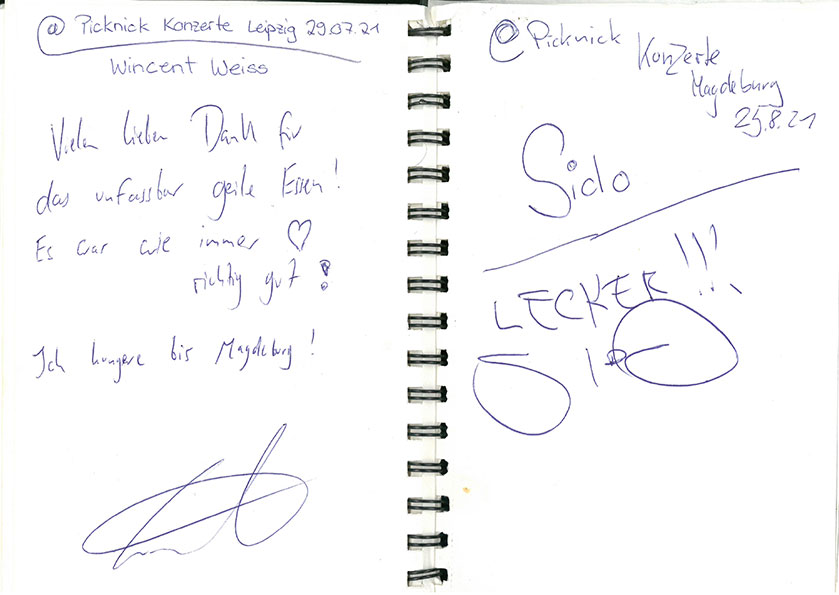 @ Picknick Konzerte Leipzig 29.07.21
Wincent Weiss
Vielen lieben Dank für
das unfassbar geile Essen!
Es war wie immer ♡
richtig gut!
Ich hungere bis Magdeburg!
@ Picknick
Konzerte
Magdeburg
25.8.21
Sido
LECKER!!!